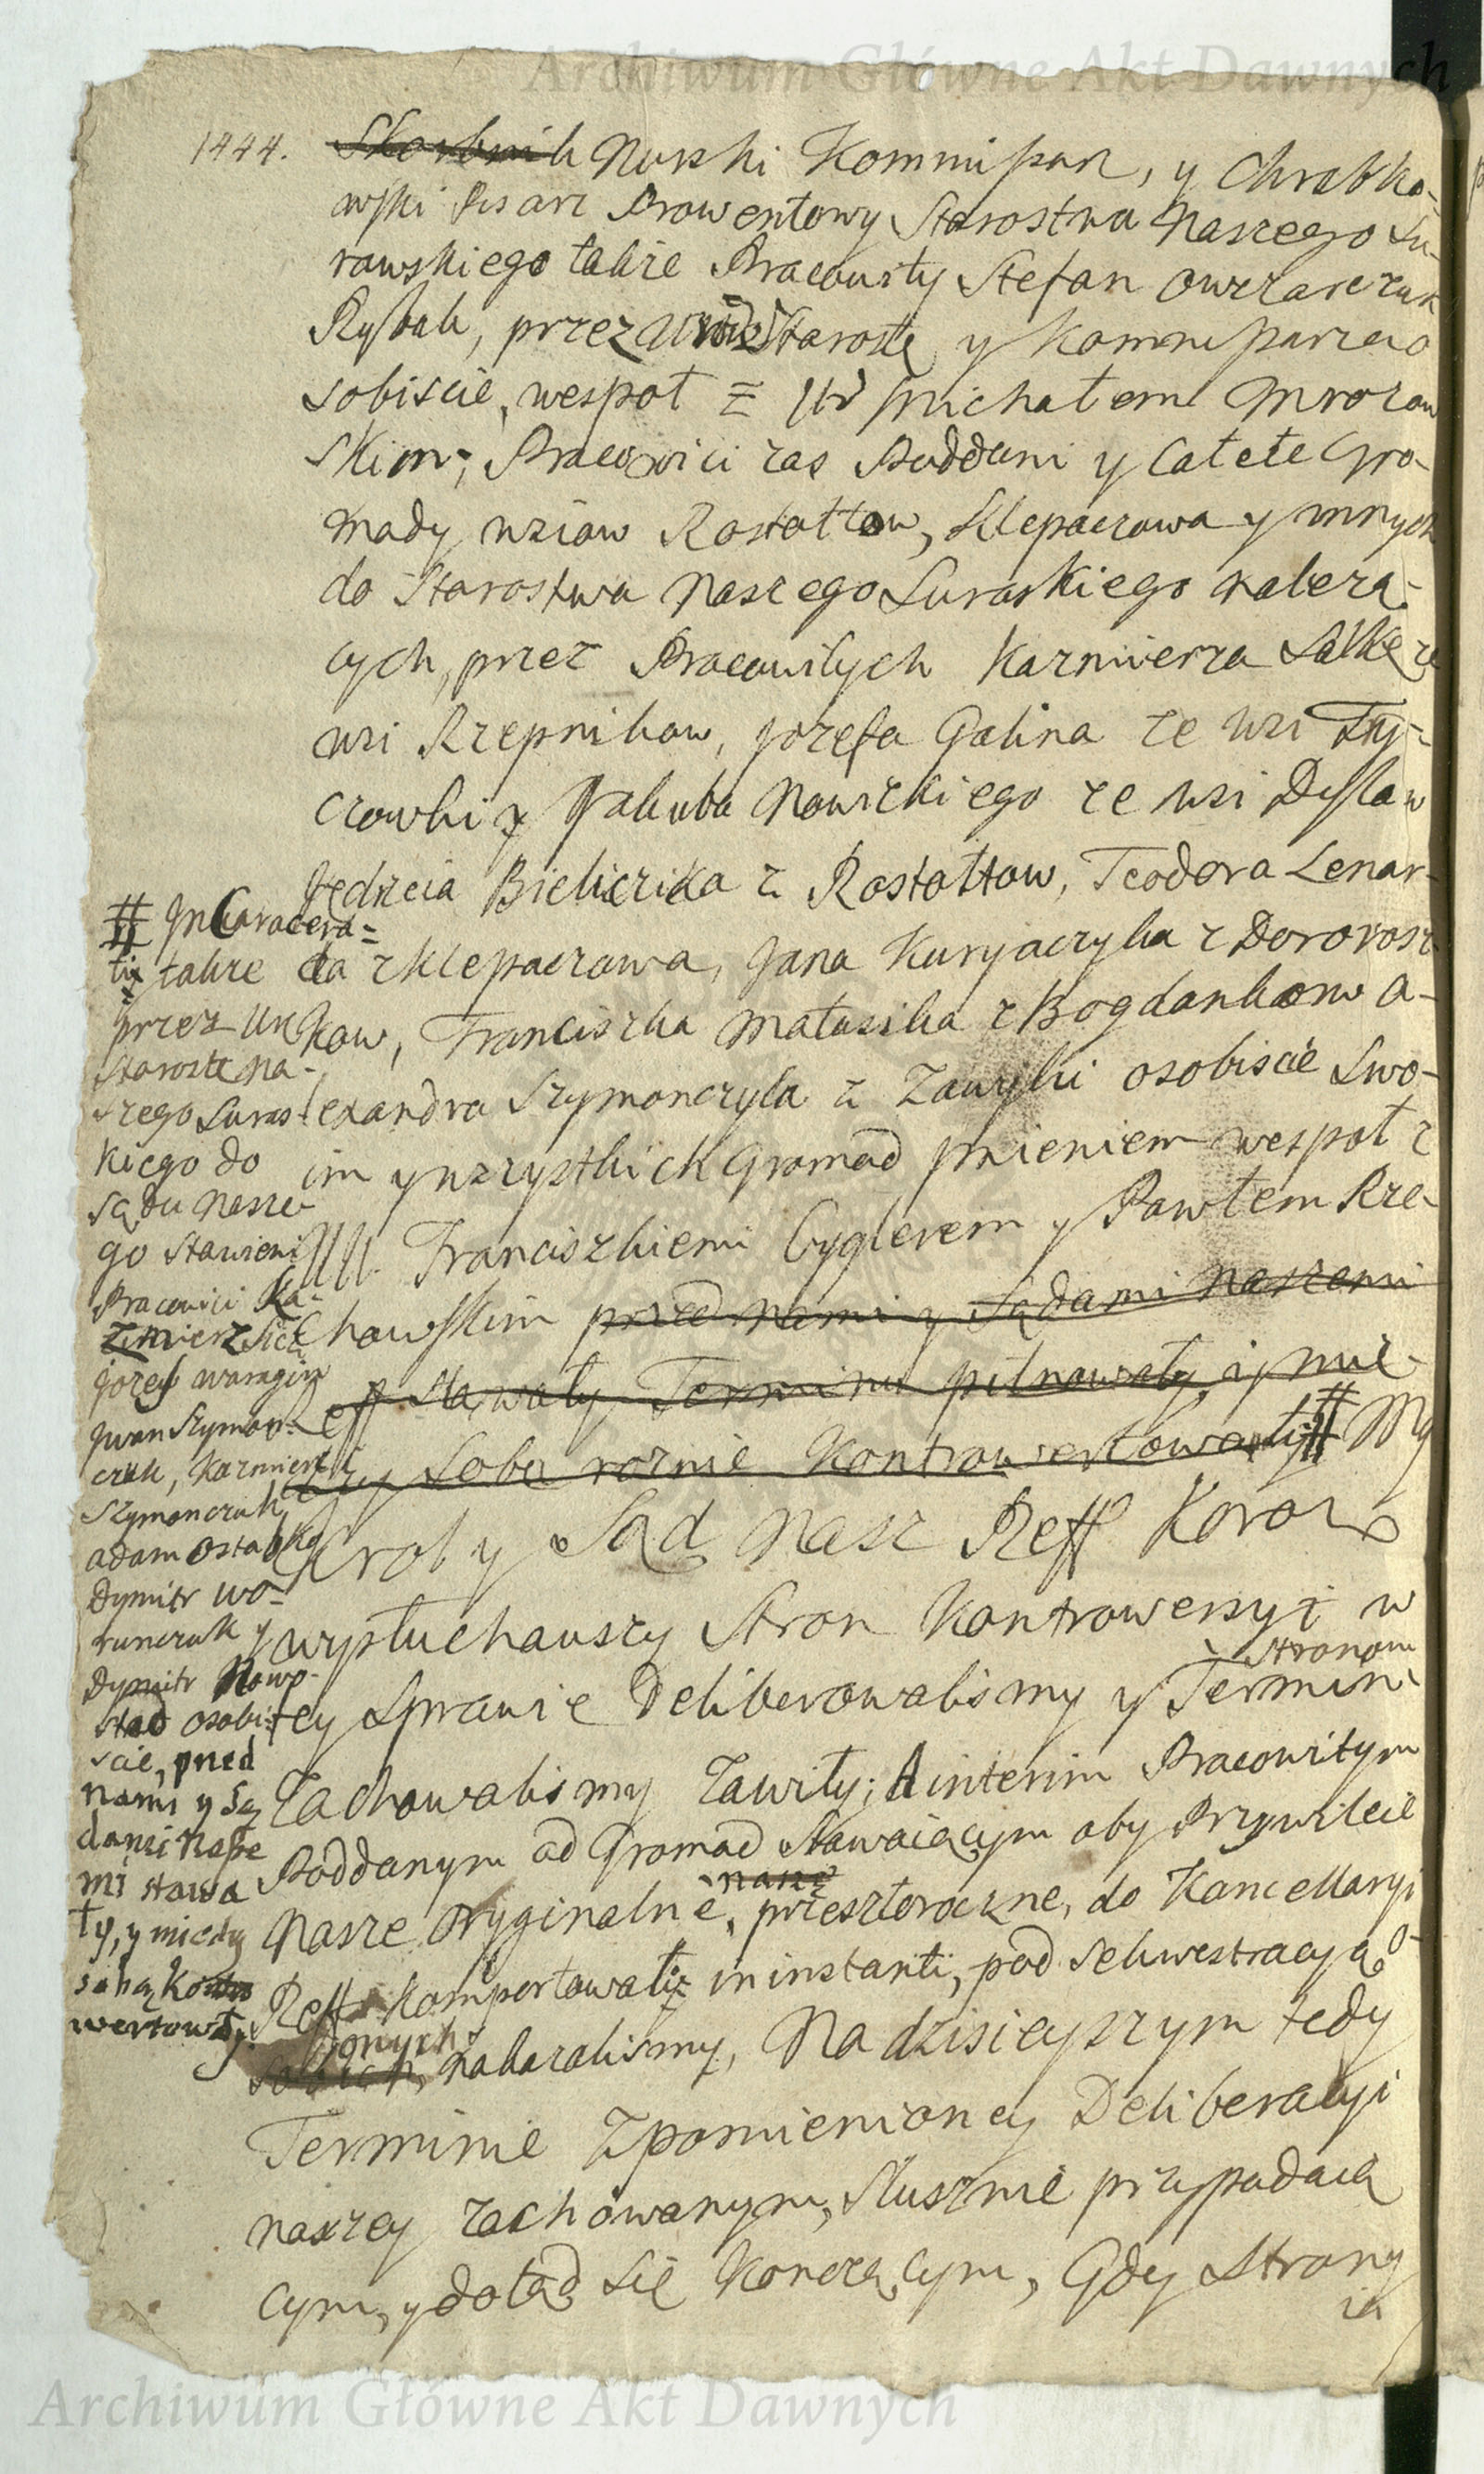 Archiwum Główne Akt Dawnych
1444. Skarbnik Nurski Kommissarz, y Chrabko-
wski Pisarz Prowentowy Starostwa Naszego Su-
rawskiego także Pracowity Stefan Owczarczuk
Rybak, przez Starostę y Kommissarza o
sobiście, wespoł z Ur Michałem Mrozow
skim; Pracowici zas Poddani y Całe te Gro-
mady wsiow Rostołtow, Klepaczowa y innych
do Starostwa Naszego Suraskiego należą-
cych, przez Pracowitych Kazmierza Sałkę ze
wsi Rzepnikow, Jozefa Galina ze wsi Try-
czowki y Jakuba Nowickiego ze wsi Dyslaw
Jędrzeia Bieliczika z Rostołtow, Teodora Lenar-
ta z Klepaczowa, Jana Kuryaczyka z Dororosz
kow, Franciszka Matusika z Bogdankow A-
lexandra Szymonczyka z Zawyki osobiscie Swo-
im y wszystkich Gromad Jmieniem wespoł z
UU. Franciszkiem Cyglerem y Pawłem Rze-
chowskim przed Nami y Sądami Naszemi
Reff Stawały Terminu pilnowały, i mie-
dzy Sobą roznie Kontrowertowały # My
Krol y Sąd Nasz Reff Koron
wysłuchawszy Stron Kontrowersyi w
tey Sprawie Deliberowalismy y Termin
Stronom
Zachowalismy Zawiły; A interim Pracowitym
Poddanym od Gromad Stawaiącym aby Przywileie
Nasze Oryginalne, przeszłoroczne, do Kancellaryi
nasze
Reff komportowali in instanti, pod Sekwestracyą o-
sobich, nakazalismy, Na dzisieyszym tedy
onych
Terminie Zpomienioney Deliberacyi
naszey zachowanym, Słusznie przypadaią
cym, y dotąd się Konczącym, Gdy Strony
ia
# Jncarcera-
ti także
przez Ur
Starostę Na-
szego Suras
kiego do
Sądu Nasze-
go Stawieni
Pracowici Ka-
zimierz
Jozef waragin
Jwan Szymon-
czuk, Kazmierz
Szymonczuk
Adam Ostabko
Dymitr Wo-
runczuk y
Dymitr Nowo-
sad osobi-
scie, przed
nami y Są
dami Nasze
mi stawa
ły, y miedzy
sobą kontro
wertowały.
Archiwum Główne Akt Dawnych